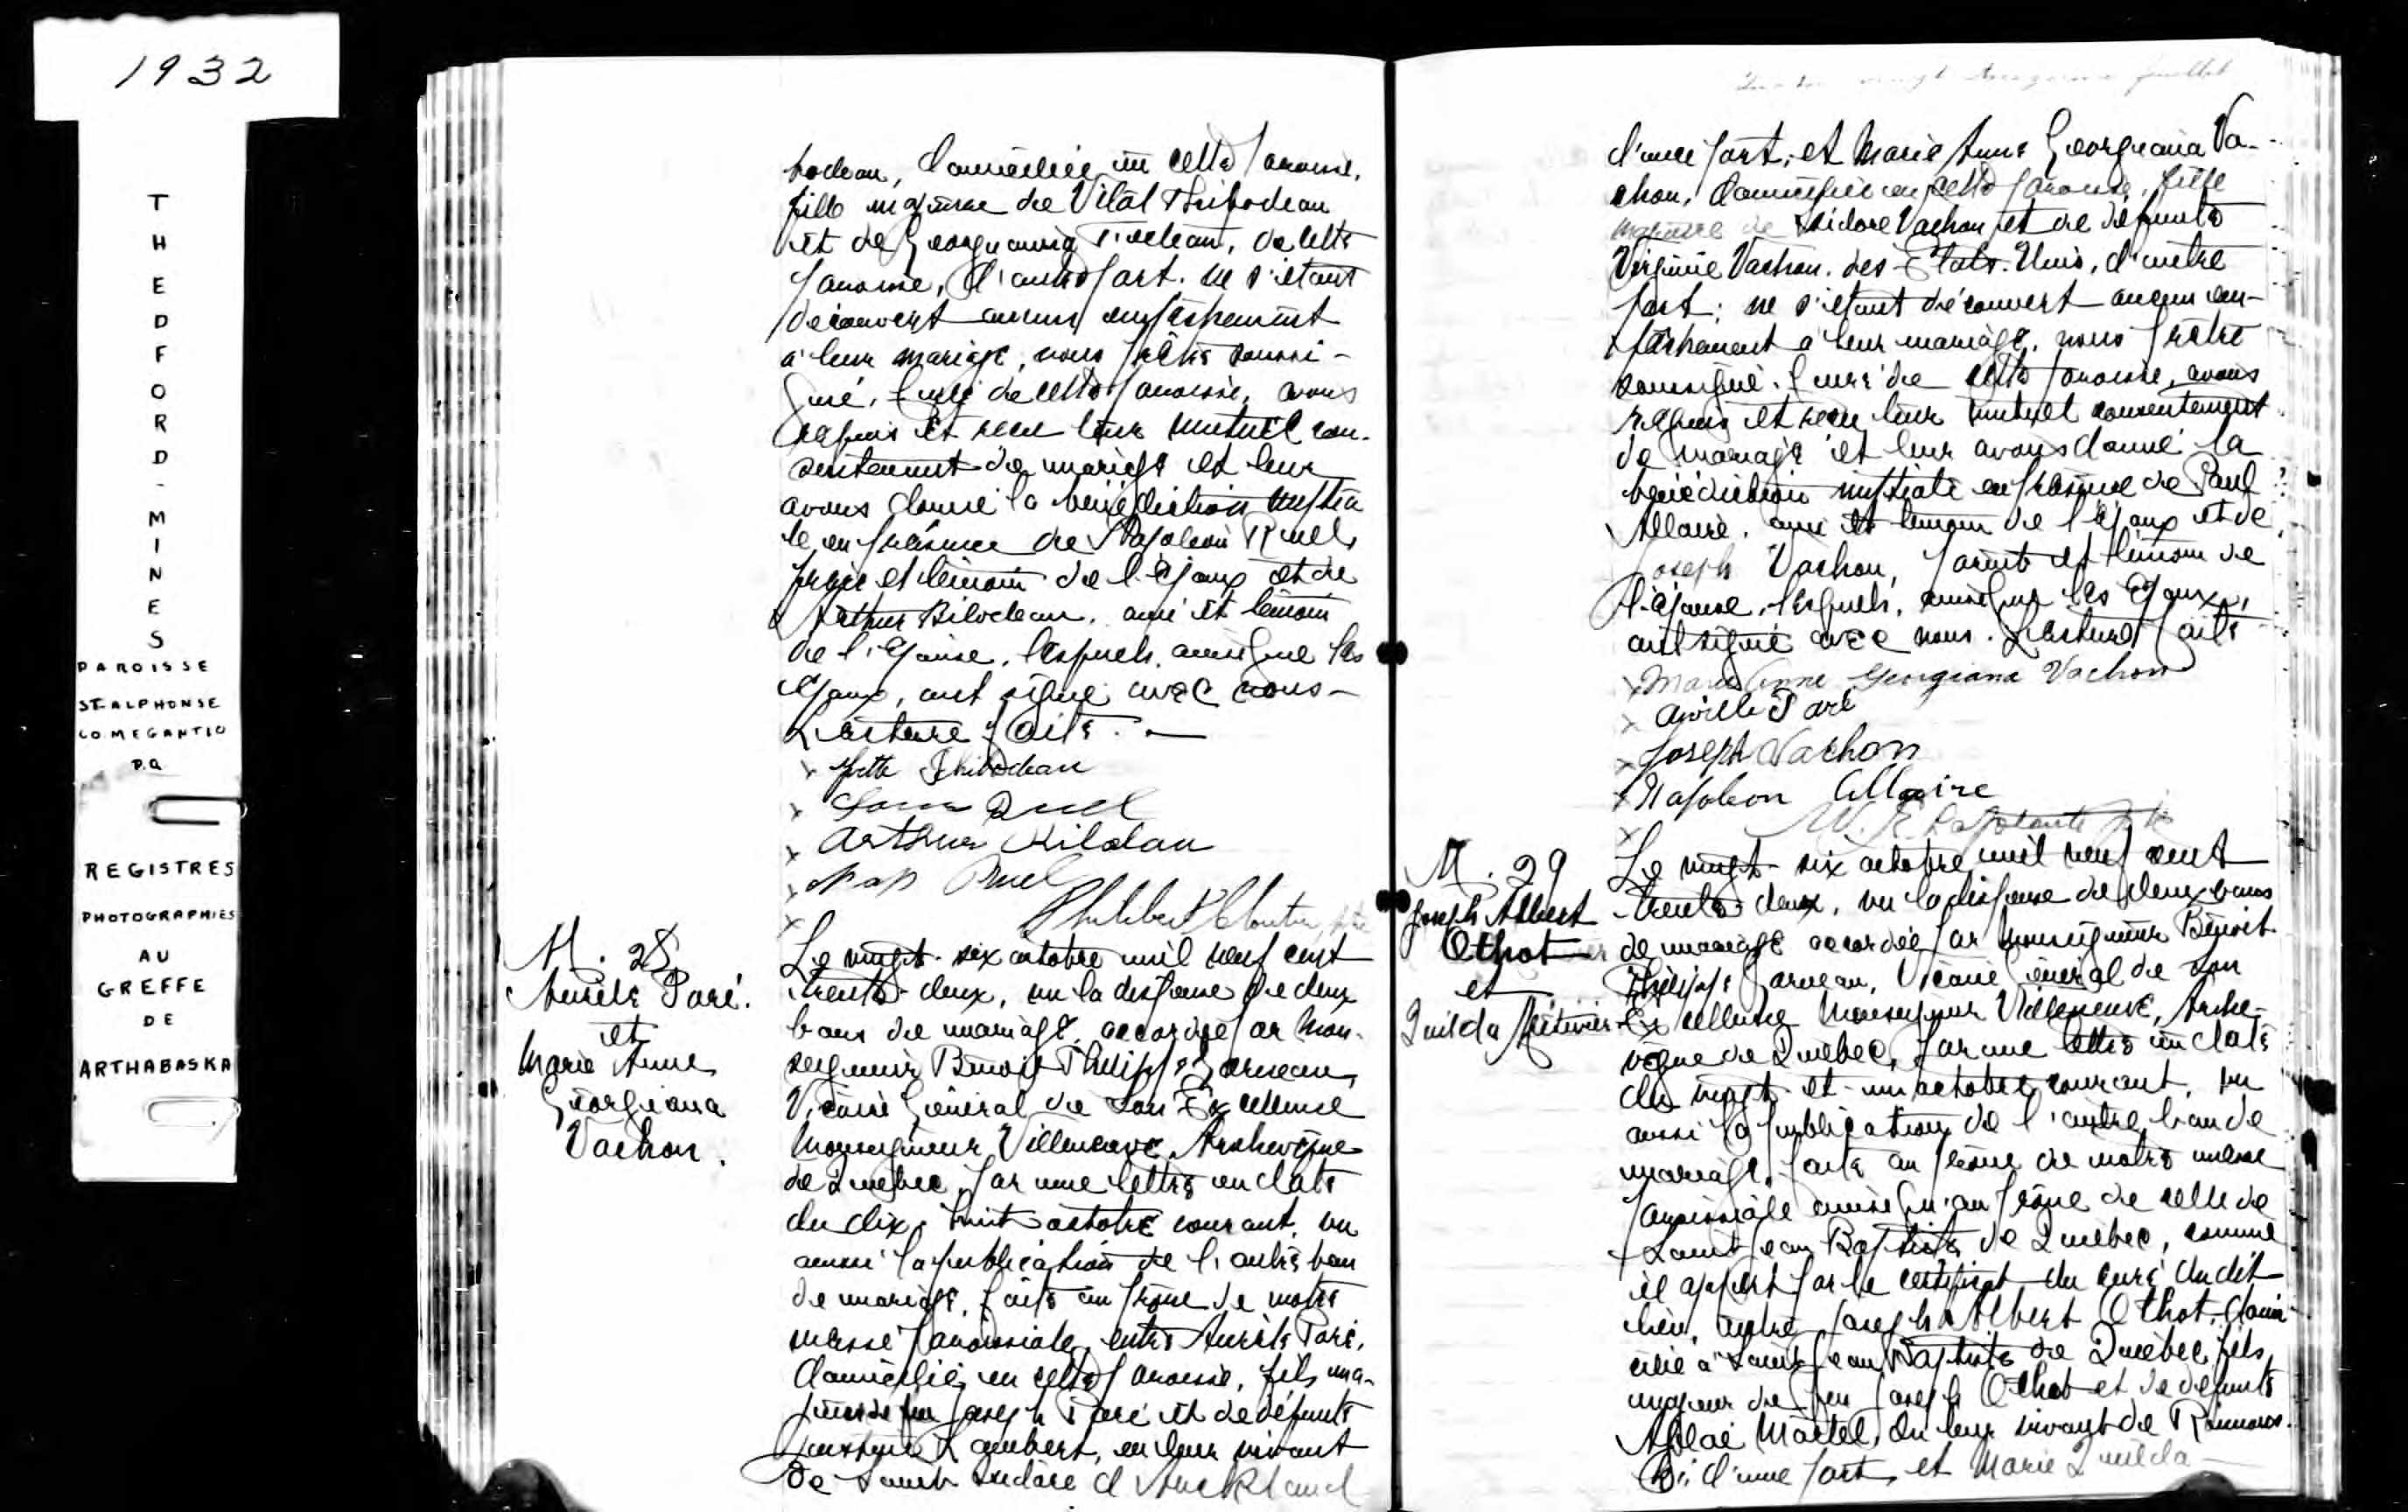 1932
THEDFORD-MINES
PAROISSE
ST-ALPHONSE
CO. MEGANTIC
P.Q
REGISTRES
PHOTOGRAPHIES
AU
GREFFE
DE
ARTHABASKA
bodeau, domiciliée en cette paroisse,
fille majeure de Vital Thibodeau
et de Georgianna, de cette
paroisse, d'autre part. ne s'étant
découvert aucun empêchement
à leur mariage, nous prêtre soussi-
gné, Curé de cette paroisse, avons
requis et reçu leur mutuel con-
sentement de mariage et leur
avons donné la bénédiction nuptia
le en présence de Napoléon Ruel,
frère et témoin de l'époux et de
Arthur Bilodeau, ami et témoin
de l'épouse, lesquels, ainsi que les
époux, ont signé avec nous -
Lecture faite. -
Thibodeau
Ruel
Arthur Bilodau
Nap Ruel
Philibert Cloutier ptre
M. 28
Aurèle Paré.
et
Marie Anne
Georgiana
Vachon.
Le vingt-six octobre mil neuf cent
trente-deux, vu la dispense de deux
bans de mariage, accordée par Mon-
seigneur Benoit Philippe Garneau,
Vicaire Général de Son Excellence
Monseigneur Villeneuve, Archevêque
de Québec, par une lettre en date
du dix-huit octobre courant, vu
aussi la publication de l'autre ban
de mariage, faite au prône de notre
messe paroissiale, entre Aurèle Paré,
domicilié en cette paroisse, fils ma-
jeur de feu Joseph Paré et de défunte
Lambert, en leur vivant
de Saint d'Auckland
feuillet
d'une part, et Marie Anne Georgiana Va-
chon, domiciliée en cette paroisse, fille
majeure de Isidore Vachon et de défunte
Virginie Vachon, des Etats-Unis, d'autre
part; ne s'étant découvert aucun em-
pêchement à leur mariage, nous prêtre
soussigné, Curé de cette paroisse, avons
requis et reçu leur mutuel consentement
de mariage et leur avons donné la
bénédiction nuptiale en présence de Paul
Allaire, ami et témoin de l'époux et de
Joseph Vachon, parent et témoin de
l'épouse, lesquels, ainsi que les époux,
ont signé avec nous. Lecture faite
Marie Anne Georgiana Vachon
Paré
Joseph Vachon
Napoleon Allaire
M. 29
Joseph Albert
Othot
et
Quilda Métivier
Le vingt-six octobre mil neuf cent
trente-deux, vu la dispense de deux bans
de mariage accordée par Monseigneur Benoit
Philippe Garneau, Vicaire Général de Son
Excellence Monseigneur Villeneuve, Arche-
vêque de Québec, par une lettre en date
du vingt-et-un octobre courant, vu
aussi la publication de l'autre ban de
mariage, faite au prône de notre messe
paroissiale ainsi qu'au prône de celle de
Saint Jean Baptiste de Québec, comme
il appert par le certificat du curé dudit
lieu, entre Joseph Albert Othot, domi-
cilié à Saint Jean Baptiste de Québec, fils
majeur de feu Joseph Othot et de défunte
Aglaé Martel, en leur vivant de Rimous-
ki, d'une part, et Marie Quilda